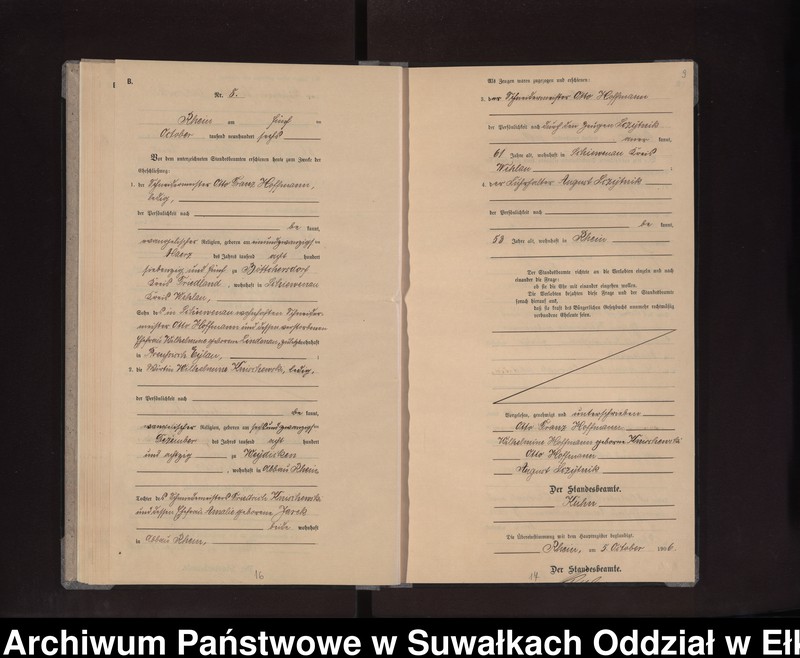 B.
Nr. 8.
Rhein am fünf ten
October tausend neunhundert sechs
Vor dem unterzeichneten Standesbeamten erschienen heute zum Zwecke der
Eheschließung:
1. der Schneidermeister Otto Franz Hoffmann,
ledig,
der Persönlichkeit nach
be kannt,
evangelischer Religion, geboren am einundzwanzigsten
März des Jahres tausend acht hundert
siebenzig und fünf zu Böttchersdorf
Kreis Friedland, wohnhaft in Schiewenau
Kreis Wehlau,
Sohn des in Schiewenau wohnhaften Schneider-
meister Otto Hoffmann und dessen verstorbenen
Ehefrau Wilhelmine geborene zuletzt wohnhaft
in Preußisch Eylau, ;
2. die Wirtin Wilhelmine ledig,
der Persönlichkeit nach
be kannt,
evangelischer Religion, geboren am sechsundzwanzigsten
Dezember des Jahres tausend acht hundert
und achtzig zu Weydicken
, wohnhaft in Abbau Rhein
Tochter des Schmiedemeisters Friedrich
und dessen Ehefrau Amalie geborene Jarek
beide wohnhaft
in Abbau Rhein,
16
3
Als Zeugen waren zugezogen und erschienen:
3. der Schneidermeister Otto Hoffmann
der Persönlichkeit nach durch den Zeugen
aner kannt,
61 Jahre alt, wohnhaft in Schiewenau Kreis
Wehlau ;
4. der August
der Persönlichkeit nach
be kannt,
53 Jahre alt, wohnhaft in Rhein
Der Standesbeamte richtete an die Verlobten einzeln und nach
einander die Frage:
ob sie die Ehe mit einander eingehen wollen.
Die Verlobten bejahten diese Frage und der Standesbeamte
sprach hierauf aus,
daß sie kraft des Bürgerlichen Gesetzbuchs nunmehr rechtmäßig
verbundene Eheleute seien.
Vorgelesen, genehmigt und unterschrieben
Otto Franz Hoffmann
Wilhelmine Hoffmann geborene
Otto Hoffmann
August
Der Standesbeamte.
Kühn
Die Übereinstimmung mit dem Hauptregister beglaubigt.
Rhein, am 5 October 1906.
Der Standesbeamte.
17
Archiwum Państwowe w Suwałkach Oddział w Ełk